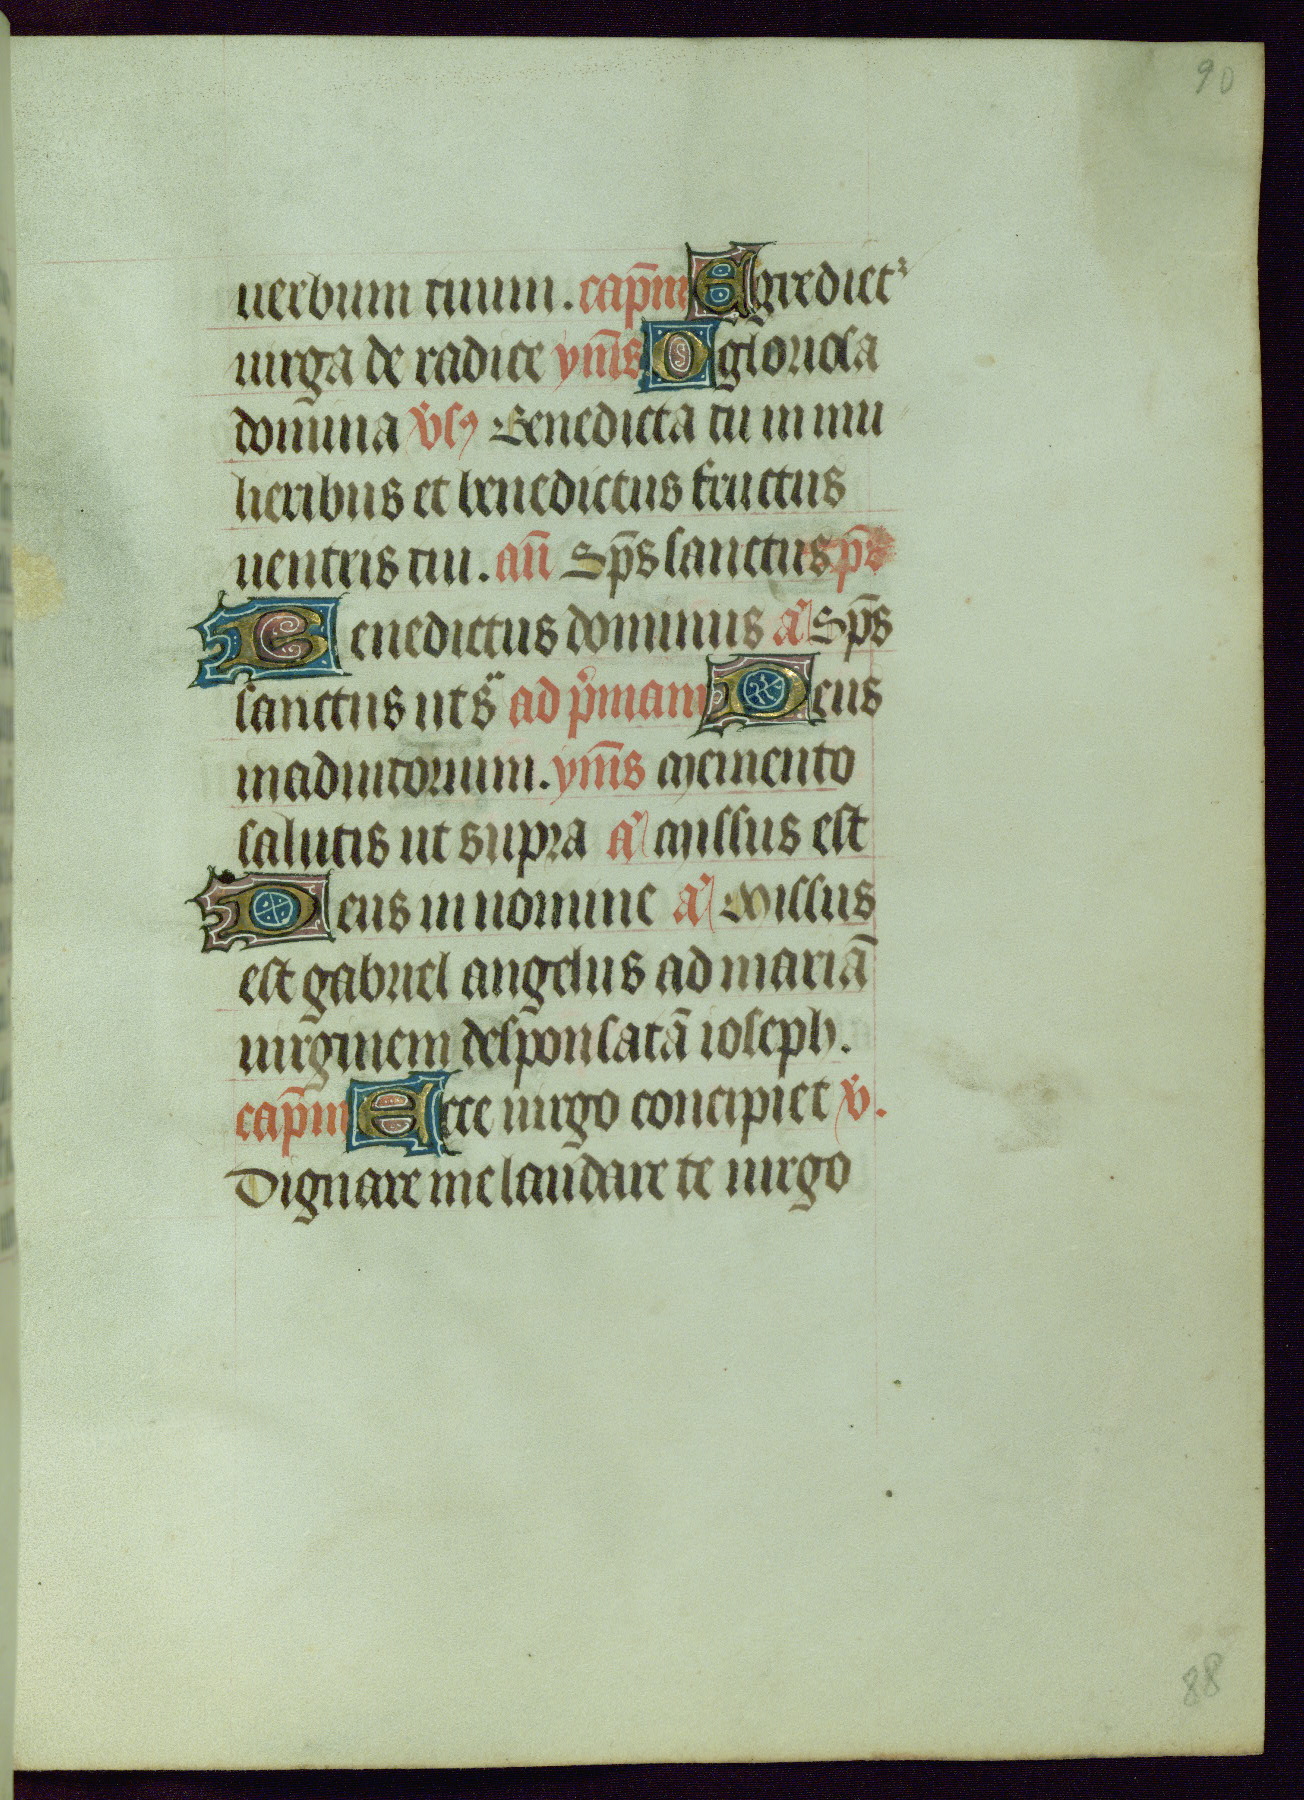 90
uerbum tuum. cap̄m Egredietᷣ
uirga de radice ym̄s O gloriosa
domina v̄sꝰ Benedicta tu in mu
lieribus et benedictus fructus
uentris tui. an̄ Sp̄s sanctus p̄s
Benedictus dominus a᷾ Sp̄s
sanctus ut sᷓ ad p̾mam Deus
in adiutorium. ym̄s Memento
salutis ut supra a᷾ Missus est
Deus in nomine a᷾ Missus
est gabriel angelus ad mariā
uirginem desponsatā ioseph.
cap̄m Ecce uirgo concipiet v̾.
Dignare me laudare te uirgo
88